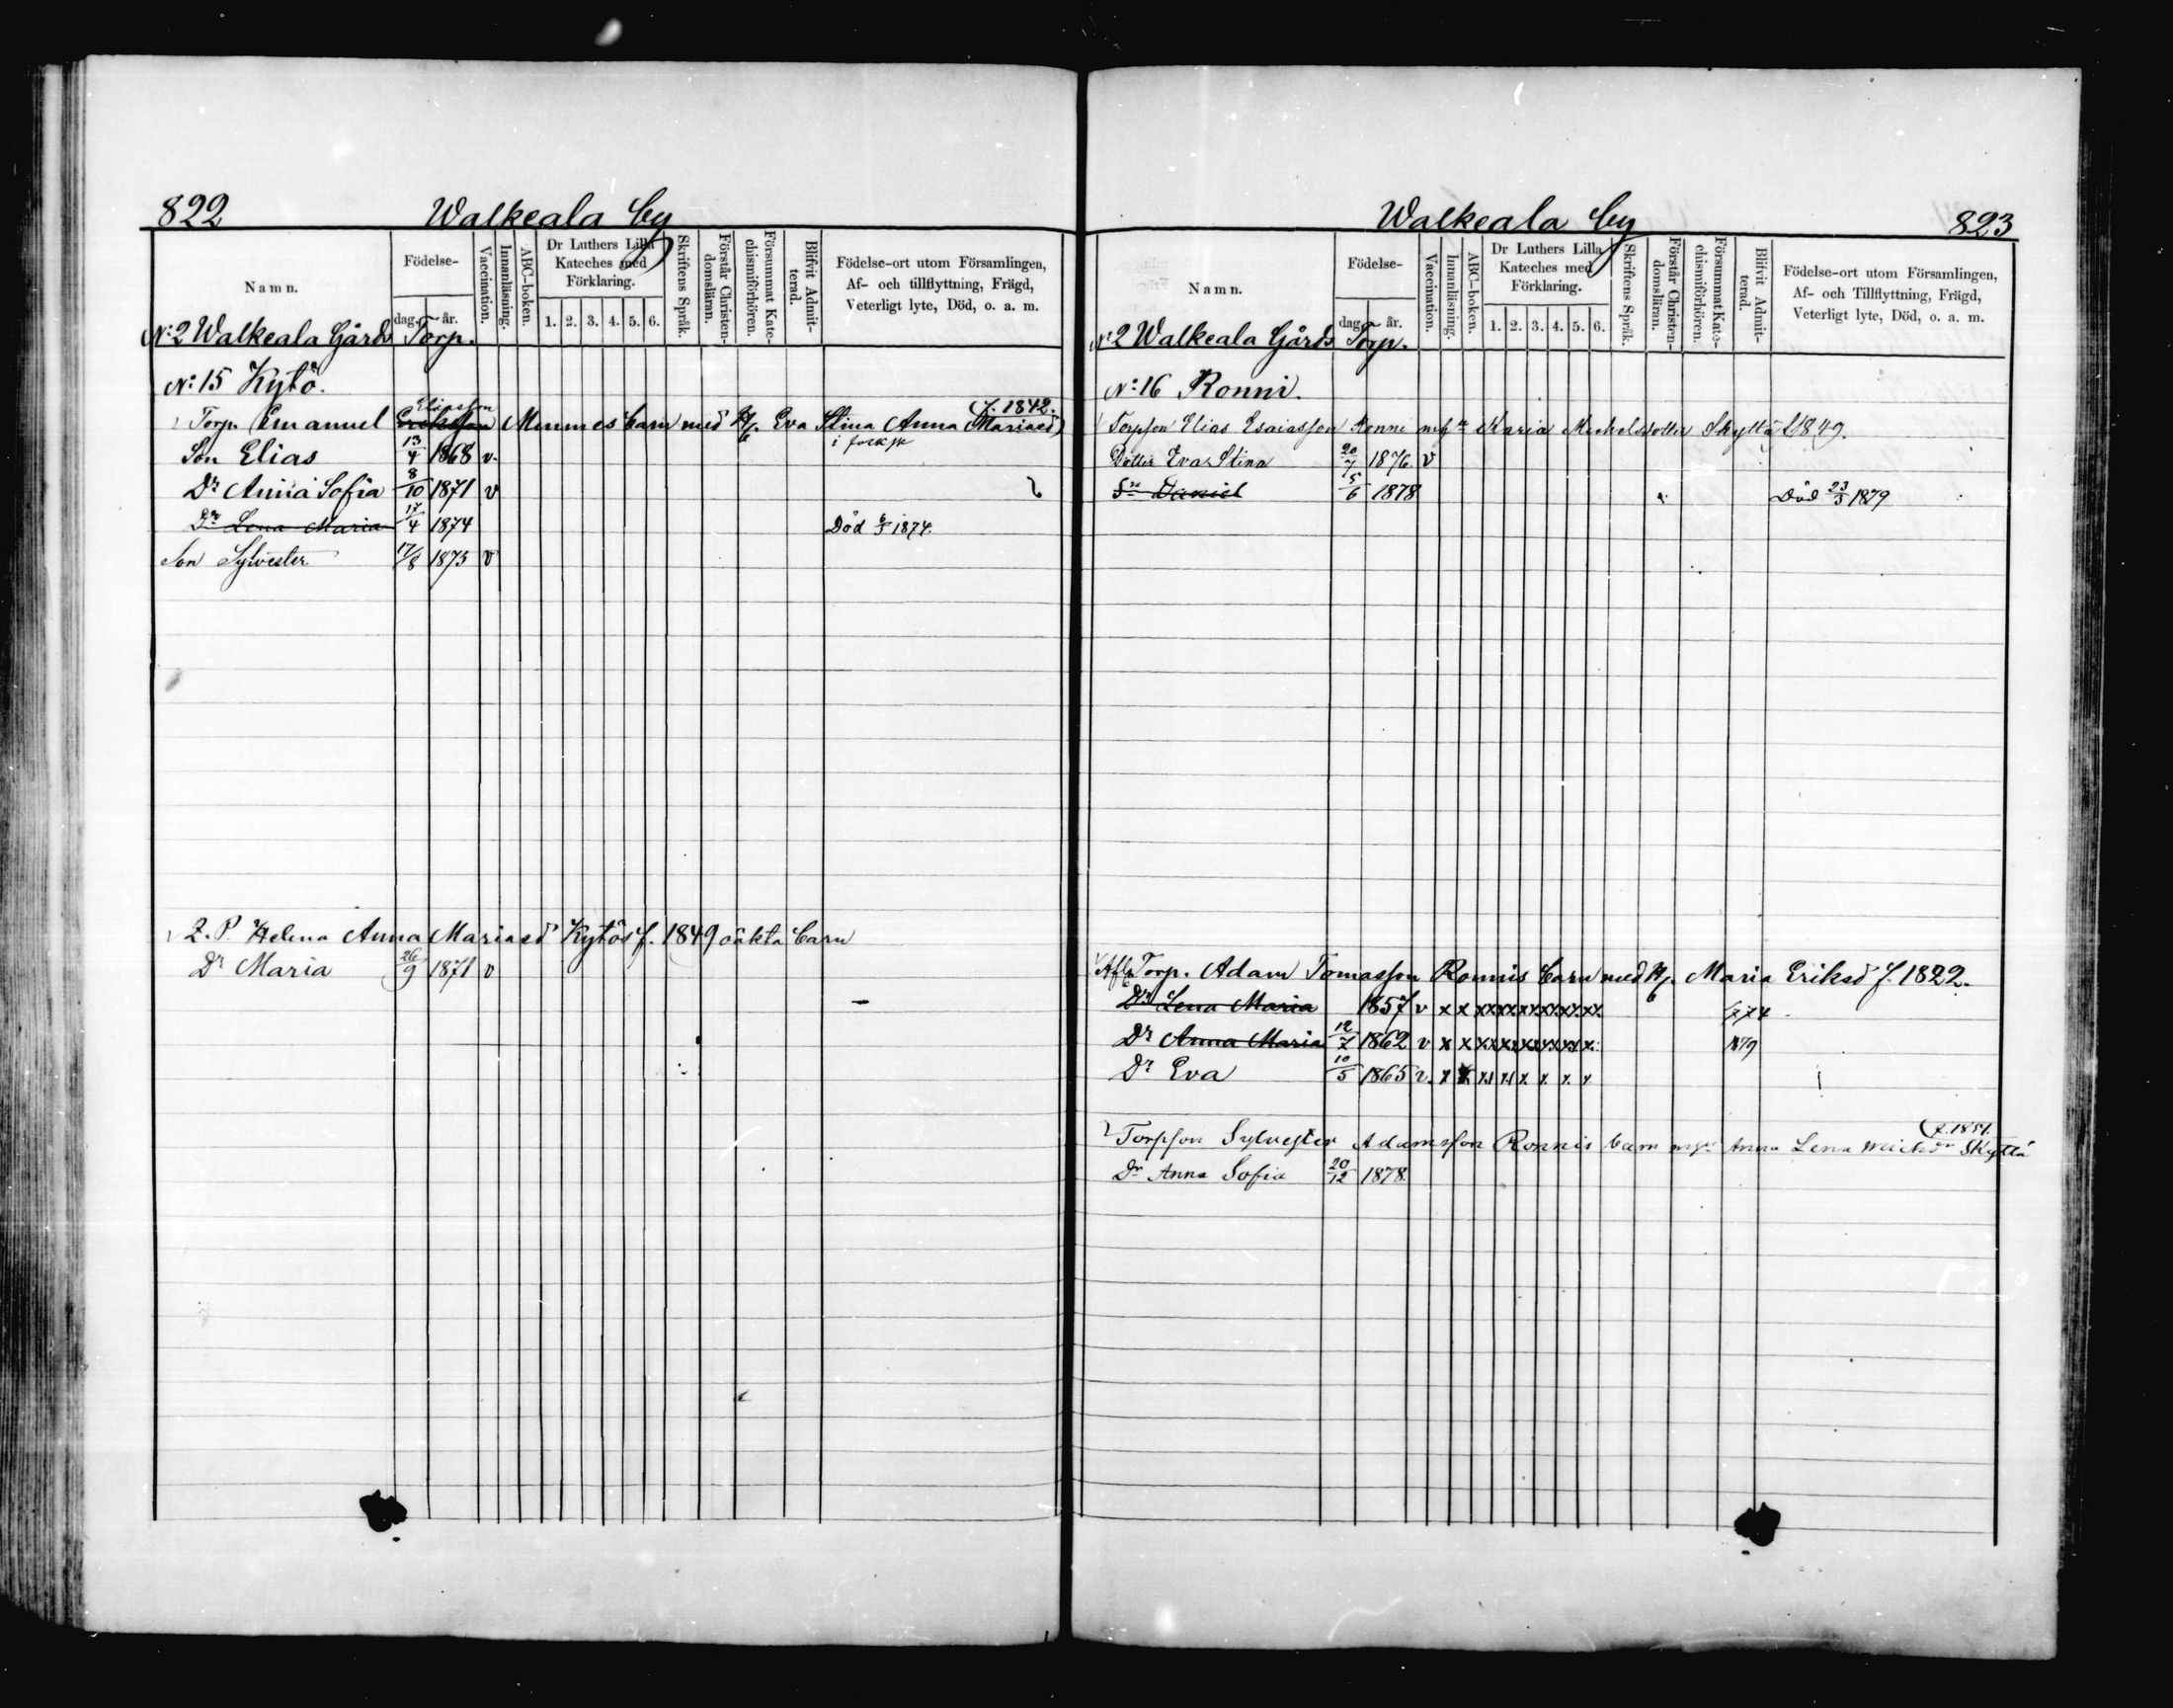 822 Walkeala by
Namn. Födelse- dag. år. Vaccination. Innanläsning. ABC-boken. Dr Luthers Lilla Kateches med Förklaring. 1. 2. 3. 4. 5. 6. Skriftens Språk. Förstår Christendomsläran. Försummat Katechismiförhören. Blifvit Admitterad. Födelse-ort utom Församlingen, Af- och tillflyttning, Frägd, Veterligt lyte, Död, o. a. m.
N:2 Walkeala Gårds Torp.
N:15 Kytö.
Eliasson f. 1842.
Torp. Emanuel Eriksson Mennes barn med H. Eva Stina Anna Mariasd
Son Elias 13/4 1868 v.
Dr Anna Sofia 8/10 1871 v
Dr Lena Maria 17/4 1874 Död 6/5 1874.
Son Sylvester 17/8 1875 v
I. P. Helena Anna Mariasd Kytös f. 1849 oäkta barn
Dr Maria 26/9 1871 v
Walkeala by 823
Namn. Födelse- dag. år. Vaccination. Innanläsning. ABC-boken. Dr Luthers Lilla Kateches med Förklaring. 1. 2. 3. 4. 5. 6. Skriftens Språk. Förstår Christendomsläran. Försummat Katechismiförhören. Blifvit Admitterad. Födelse-ort utom Församlingen, Af- och Tillflyttning, Frägd, Veterligt lyte, Död, o. a. m.
N:2 Walkeala Gårds Torp.
N:16 Ronni.
Torpson Elias Esaiasson Ronni m h Maria Michelsdotter Skyttä f. 1849.
Dotter Eva Stina 20/7 1876 v
Sn Daniel 15/6 1878 Död 23/3 1879
Afl. Torp. Adam Tomasson Ronnis barn med H. Maria Eriksd f. 1822.
Dr Lena Maria 1857 v x x xx xx xx xx xx xx 74
Dr Anna Maria 12/7 1862 v x x xx xx xx xx xx x 1879
Dr Eva 10/5 1865 v. x x xx xx x x x x
f. 1851.
Torpson Sylvester Adamsson Ronnis barn m h Anna Lena Michdr Skyttä
Dr Anna Sofia 20/12 1878.